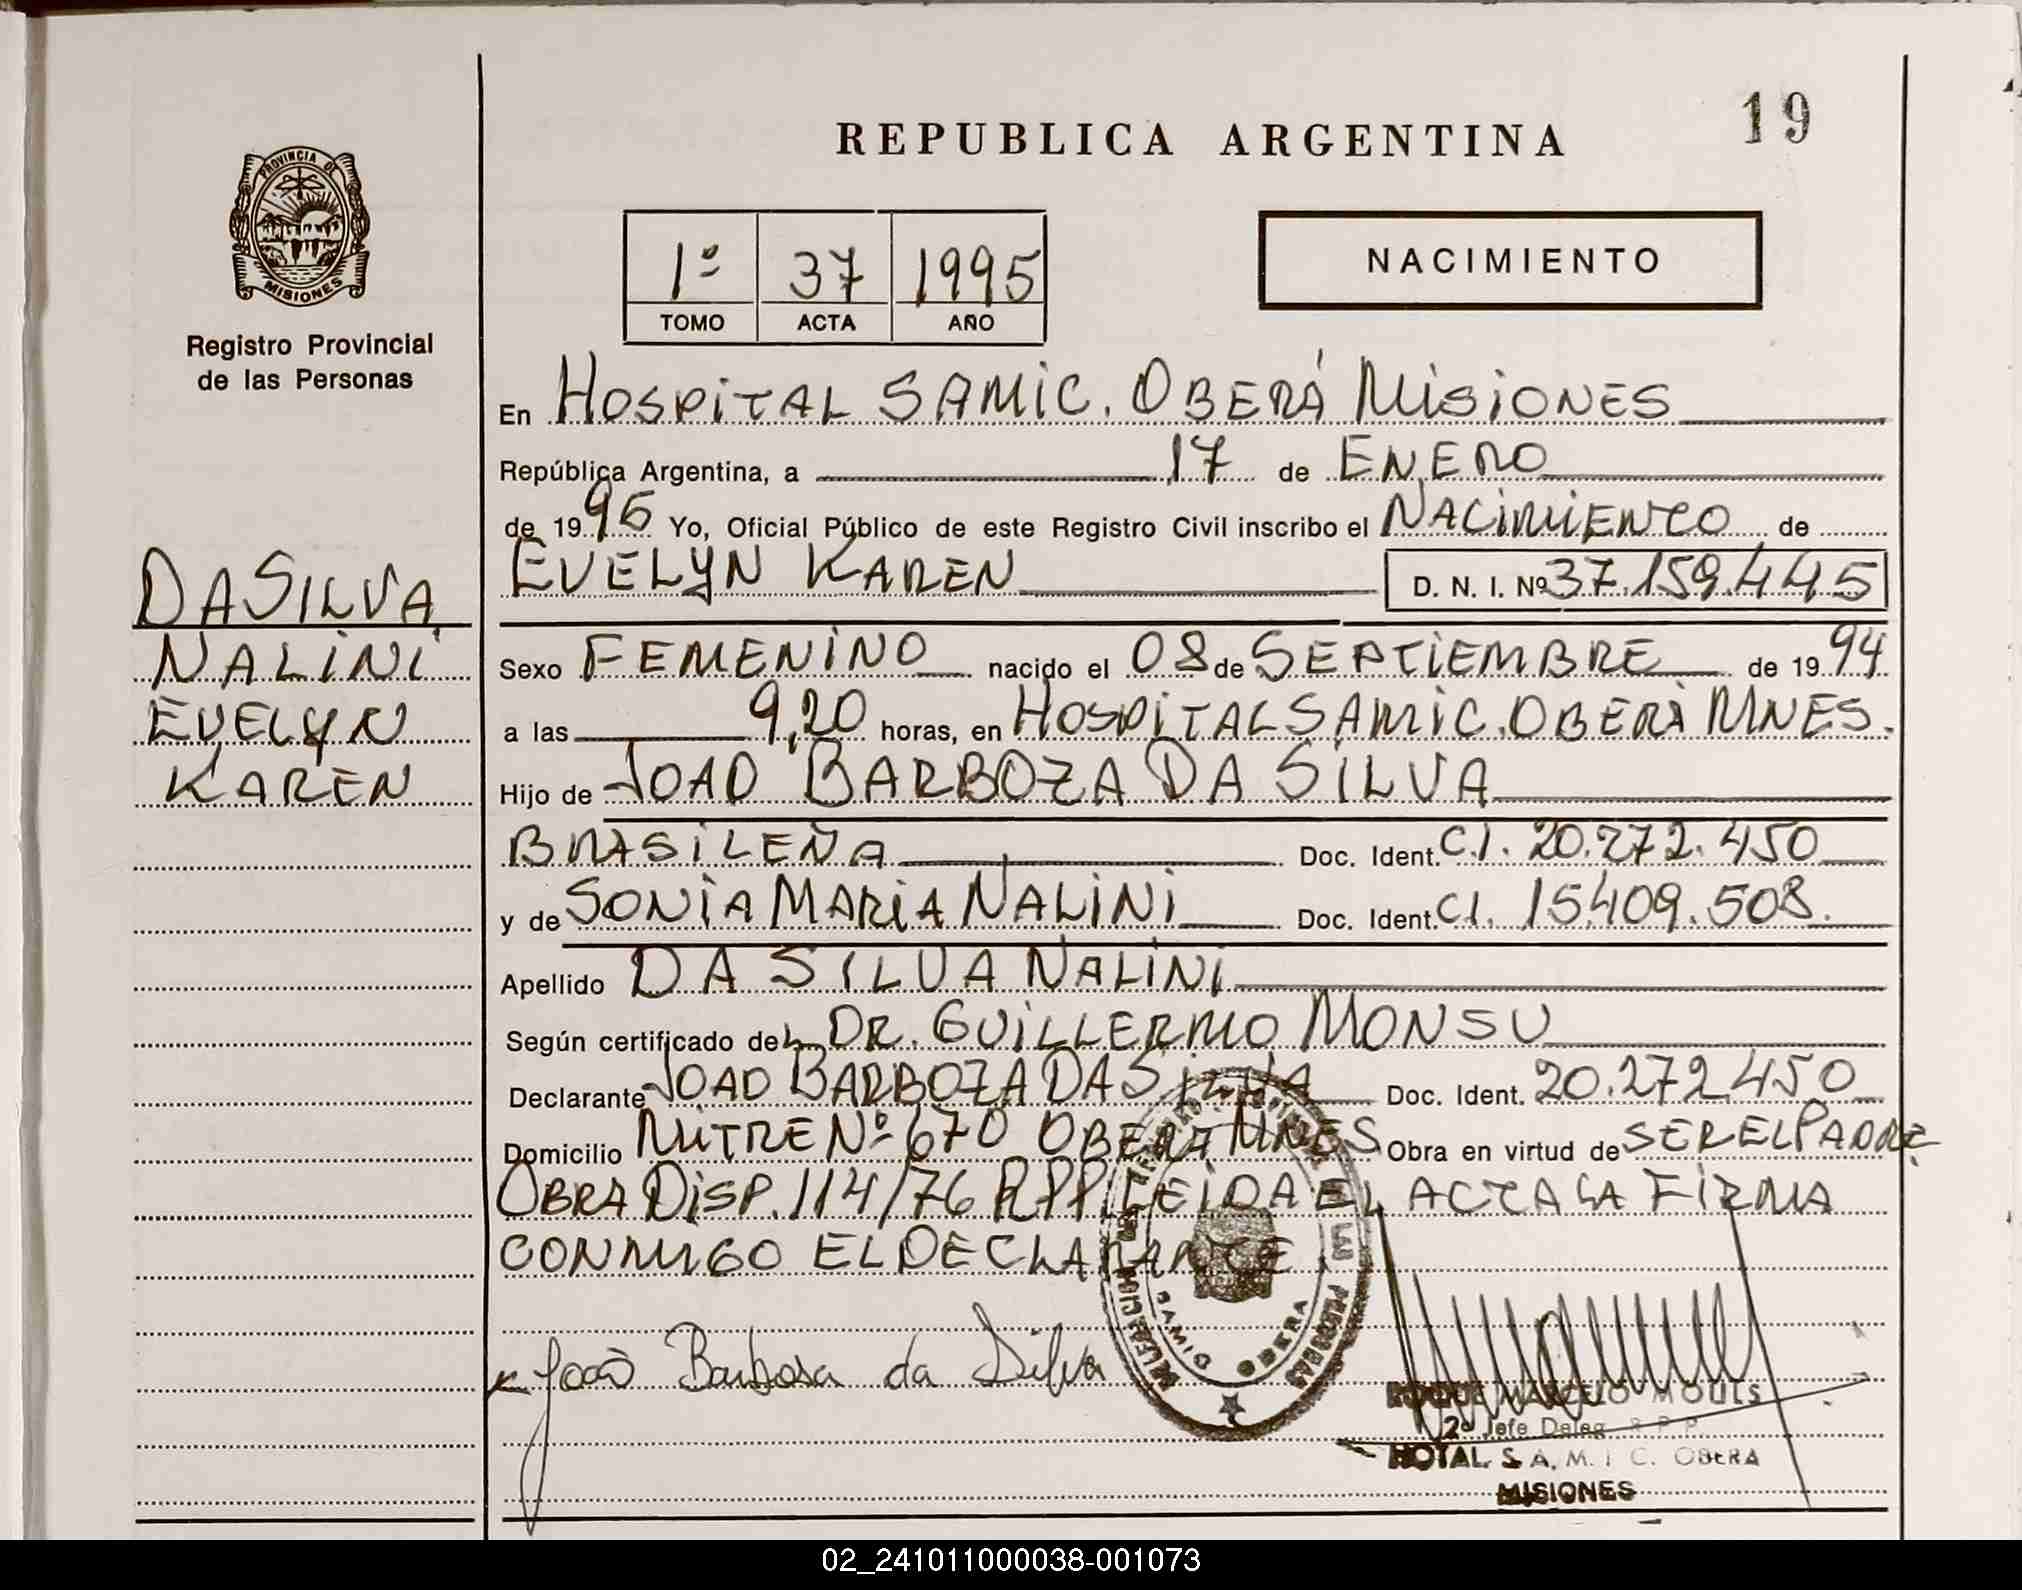 19
REPUBLICA ARGENTINA
PROVINCIA DE
MISIONES
Registro Provincial
de las Personas
1º 37 1995
TOMO ACTA AÑO
NACIMIENTO
DA SILVA
NALINI
EVELYN
KAREN
En HOSPITAL SAMIC. OBERÁ MISIONES
República Argentina, a 17 de ENERO
de 1995 Yo, Oficial Público de este Registro Civil inscribo el NACIMIENTO de
EVELYN KAREN D. N. I. Nº 37.159.445
Sexo FEMENINO nacido el 08 de SEPTIEMBRE de 1994
a las 9,20 horas, en HOSPITAL SAMIC. OBERÁ MNES.
Hijo de JOAO BARBOZA DA SILVA
BRASILEÑA Doc. Ident. C.I. 20.272.450
y de SONIA MARIA NALINI Doc. Ident. C.I. 15.409.508.
Apellido DA SILVA NALINI
Según certificado del DR. GUILLERMO MONSU
Declarante JOAO BARBOZA DA SILVA Doc. Ident. 20.272.450
Domicilio MITRE Nº 670 OBERA MNES Obra en virtud de SER EL PADRE.
OBRA DISP. 114/76 RPP LEIDA EL ACTA LA FIRMA
CONMIGO EL DECLARANTE.
João Barbosa da Silva
SAMIC OBERA
ROQUE MARCELO MOULS
2º Jefe Deleg. R.P.P.
HOTAL. S. A. M. I C. OBERA
MISIONES
02_241011000038-001073